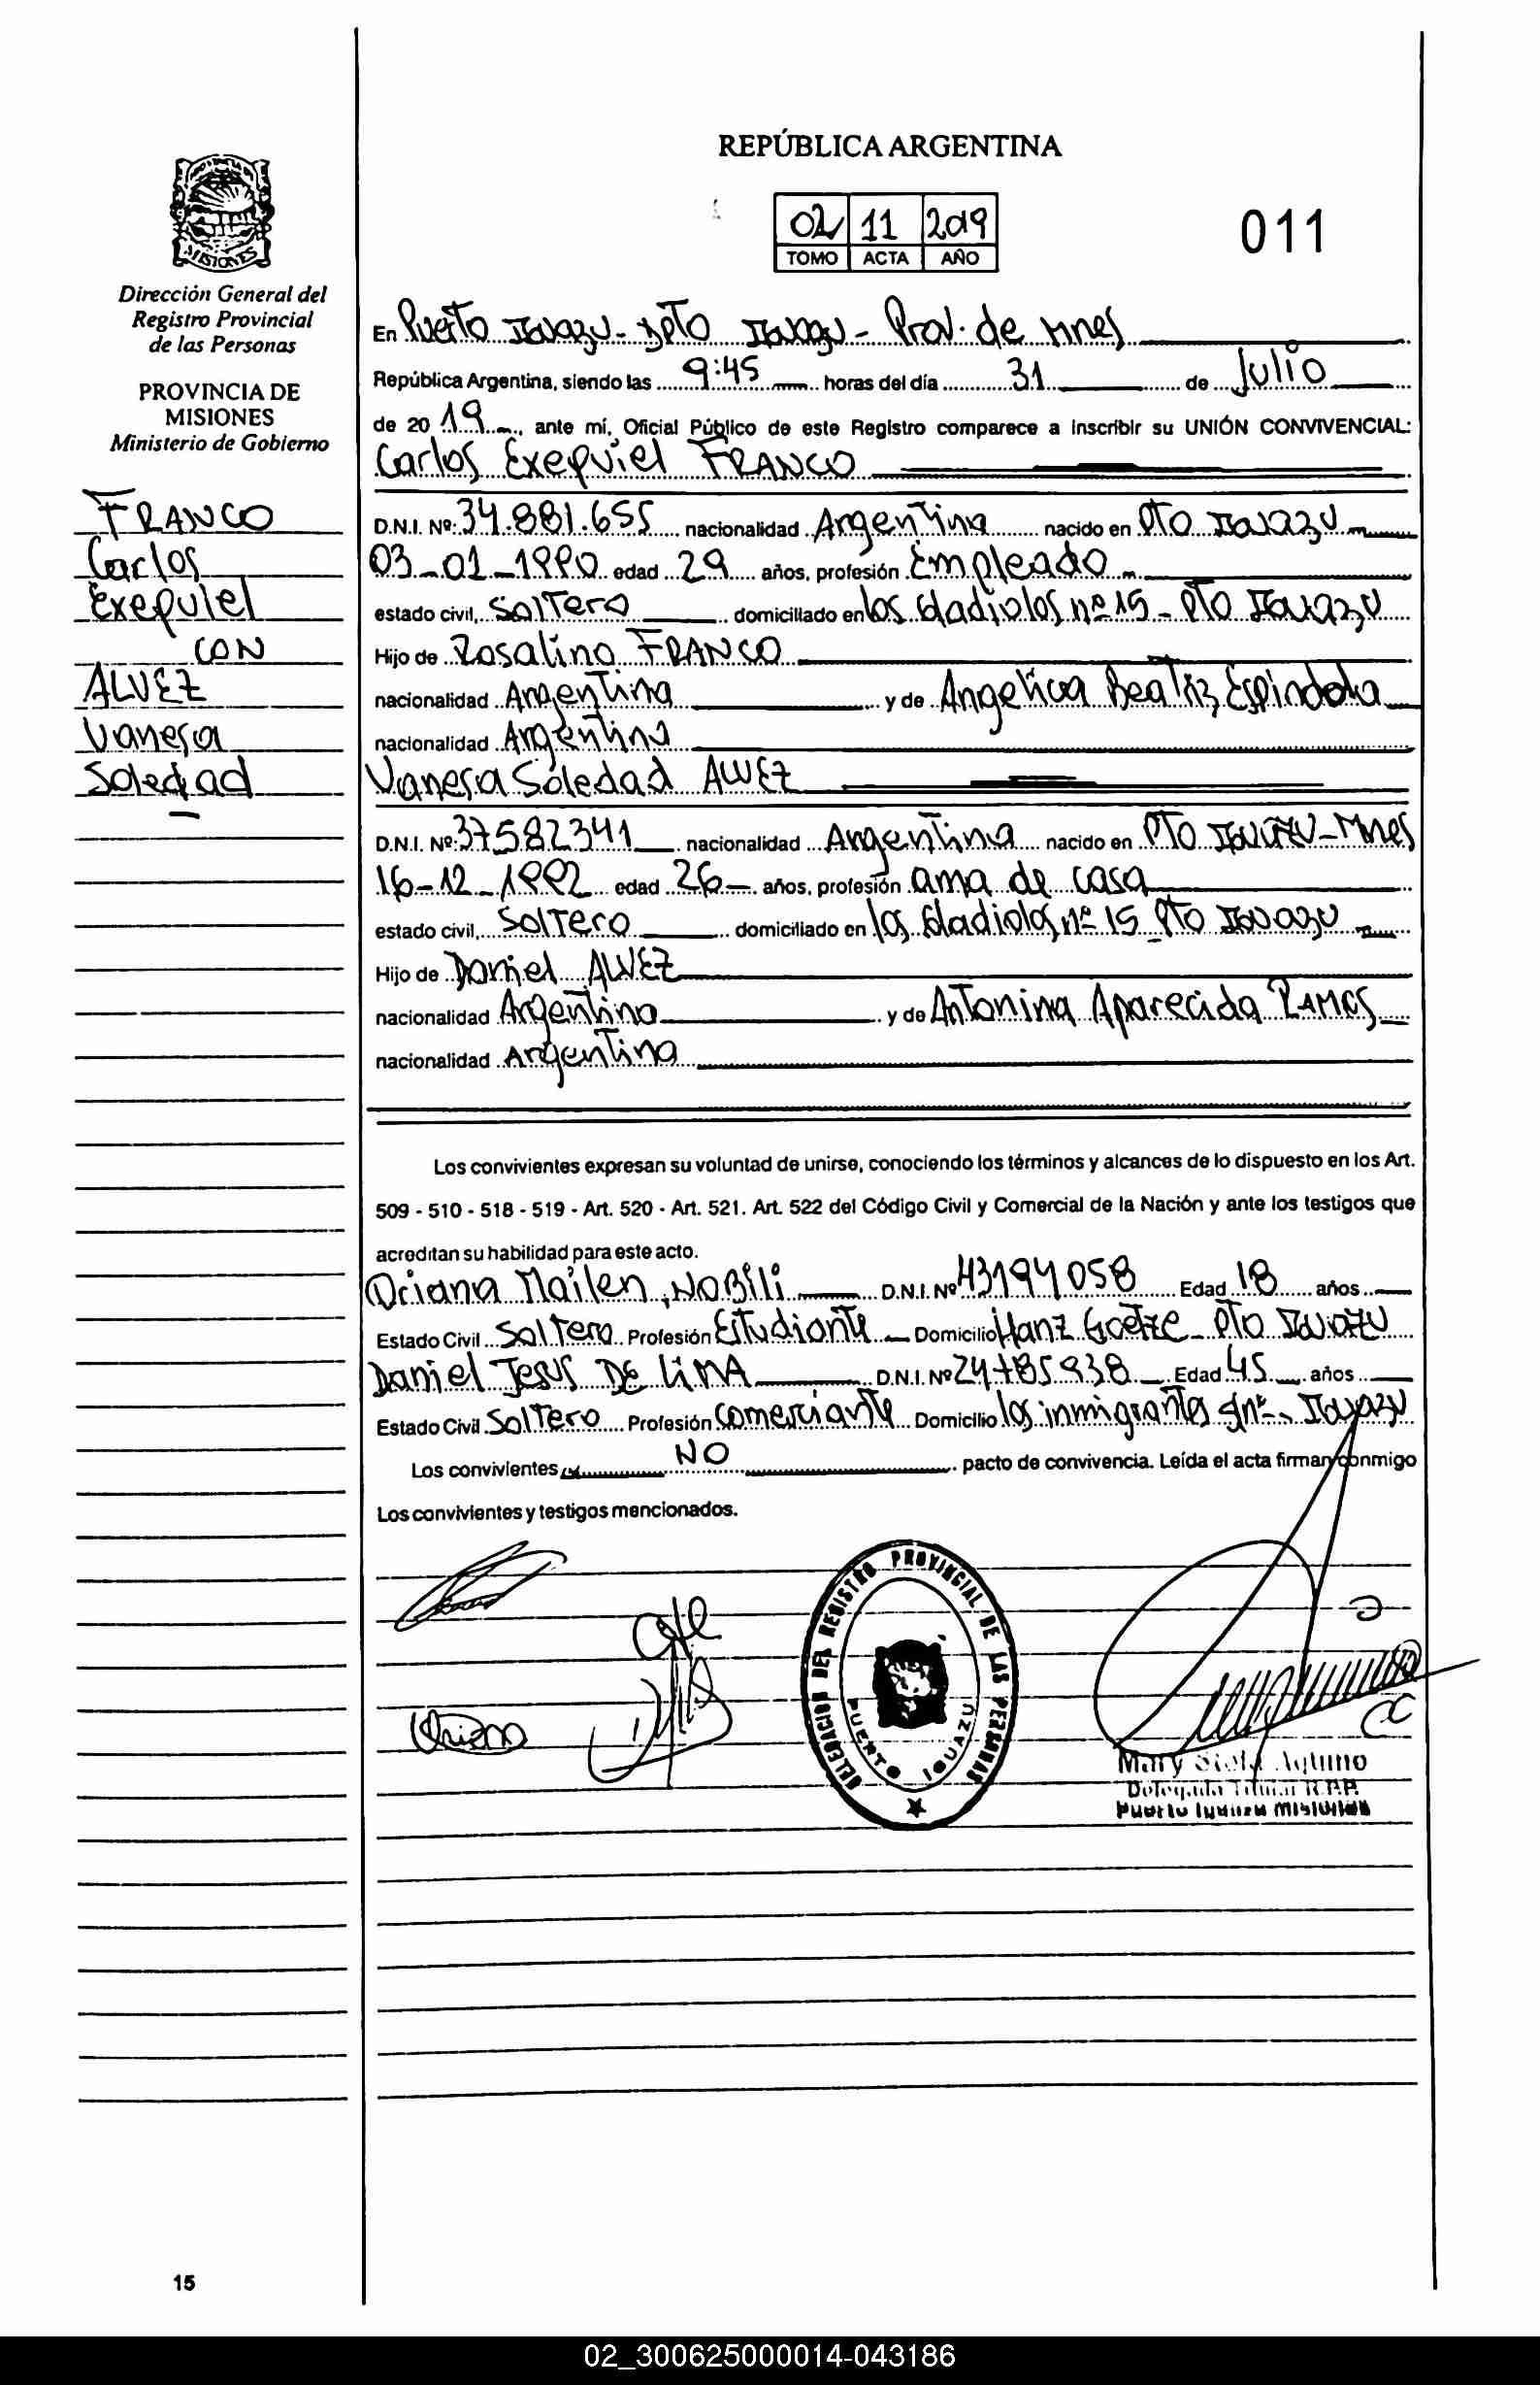 REPÚBLICA ARGENTINA
02 11 2019
TOMO ACTA AÑO
011
MISIONES
Dirección General del
Registro Provincial
de las Personas
PROVINCIA DE
MISIONES
Ministerio de Gobierno
FRANCO
Carlos
Exequiel
CON
ALVEZ
Vanesa
Soledad
En Puerto Iguazu - Dpto Iguazu - Prov. de Mnes
República Argentina, siendo las 9:45 horas del día 31 de Julio
de 20 19, ante mí, Oficial Público de este Registro comparece a inscribir su UNIÓN CONVIVENCIAL:
Carlos Exequiel FRANCO
D.N.I. Nº: 34.881.655 nacionalidad Argentina nacido en Pto Iguazu
03-01-1990 edad 29 años, profesión Empleado
estado civil, Soltero domiciliado en los Gladiolos nº 15 - Pto Iguazu
Hijo de Rosalino FRANCO
nacionalidad Argentina y de Angelica Beatriz Espindola
nacionalidad Argentina
Vanesa Soledad ALVEZ
D.N.I. Nº: 37582341 nacionalidad Argentina nacido en Pto Iguazu - Mnes
16-12-1992 edad 26 años, profesión ama de casa
estado civil, Soltero domiciliado en los Gladiolos nº 15 Pto Iguazu
Hijo de Daniel ALVEZ
nacionalidad Argentino y de Antonina Aparecida RAMOS
nacionalidad Argentina
Los convivientes expresan su voluntad de unirse, conociendo los términos y alcances de lo dispuesto en los Art.
509 - 510 - 518 - 519 - Art. 520 - Art. 521. Art. 522 del Código Civil y Comercial de la Nación y ante los testigos que
acreditan su habilidad para este acto.
Oriana Mailen, NOBILI D.N.I. Nº 43194058 Edad 18 años
Estado Civil Soltera Profesión Estudiante Domicilio Hanz Goetze - Pto Iguazu
Daniel Jesus DE LIMA D.N.I. Nº 24785938 Edad 45 años
Estado Civil Soltero Profesión Comerciante Domicilio los inmigrantes Iguazu
Los convivientes NO pacto de convivencia. Leída el acta firman conmigo
Los convivientes y testigos mencionados.
DELEGACION DEL REGISTRO PROVINCIAL DE LAS PERSONAS
PUERTO IGUAZU
Oriana
Mary
Delegada Titular R.P.P.
Puerto Iguazu Misiones
15
02_300625000014-043186